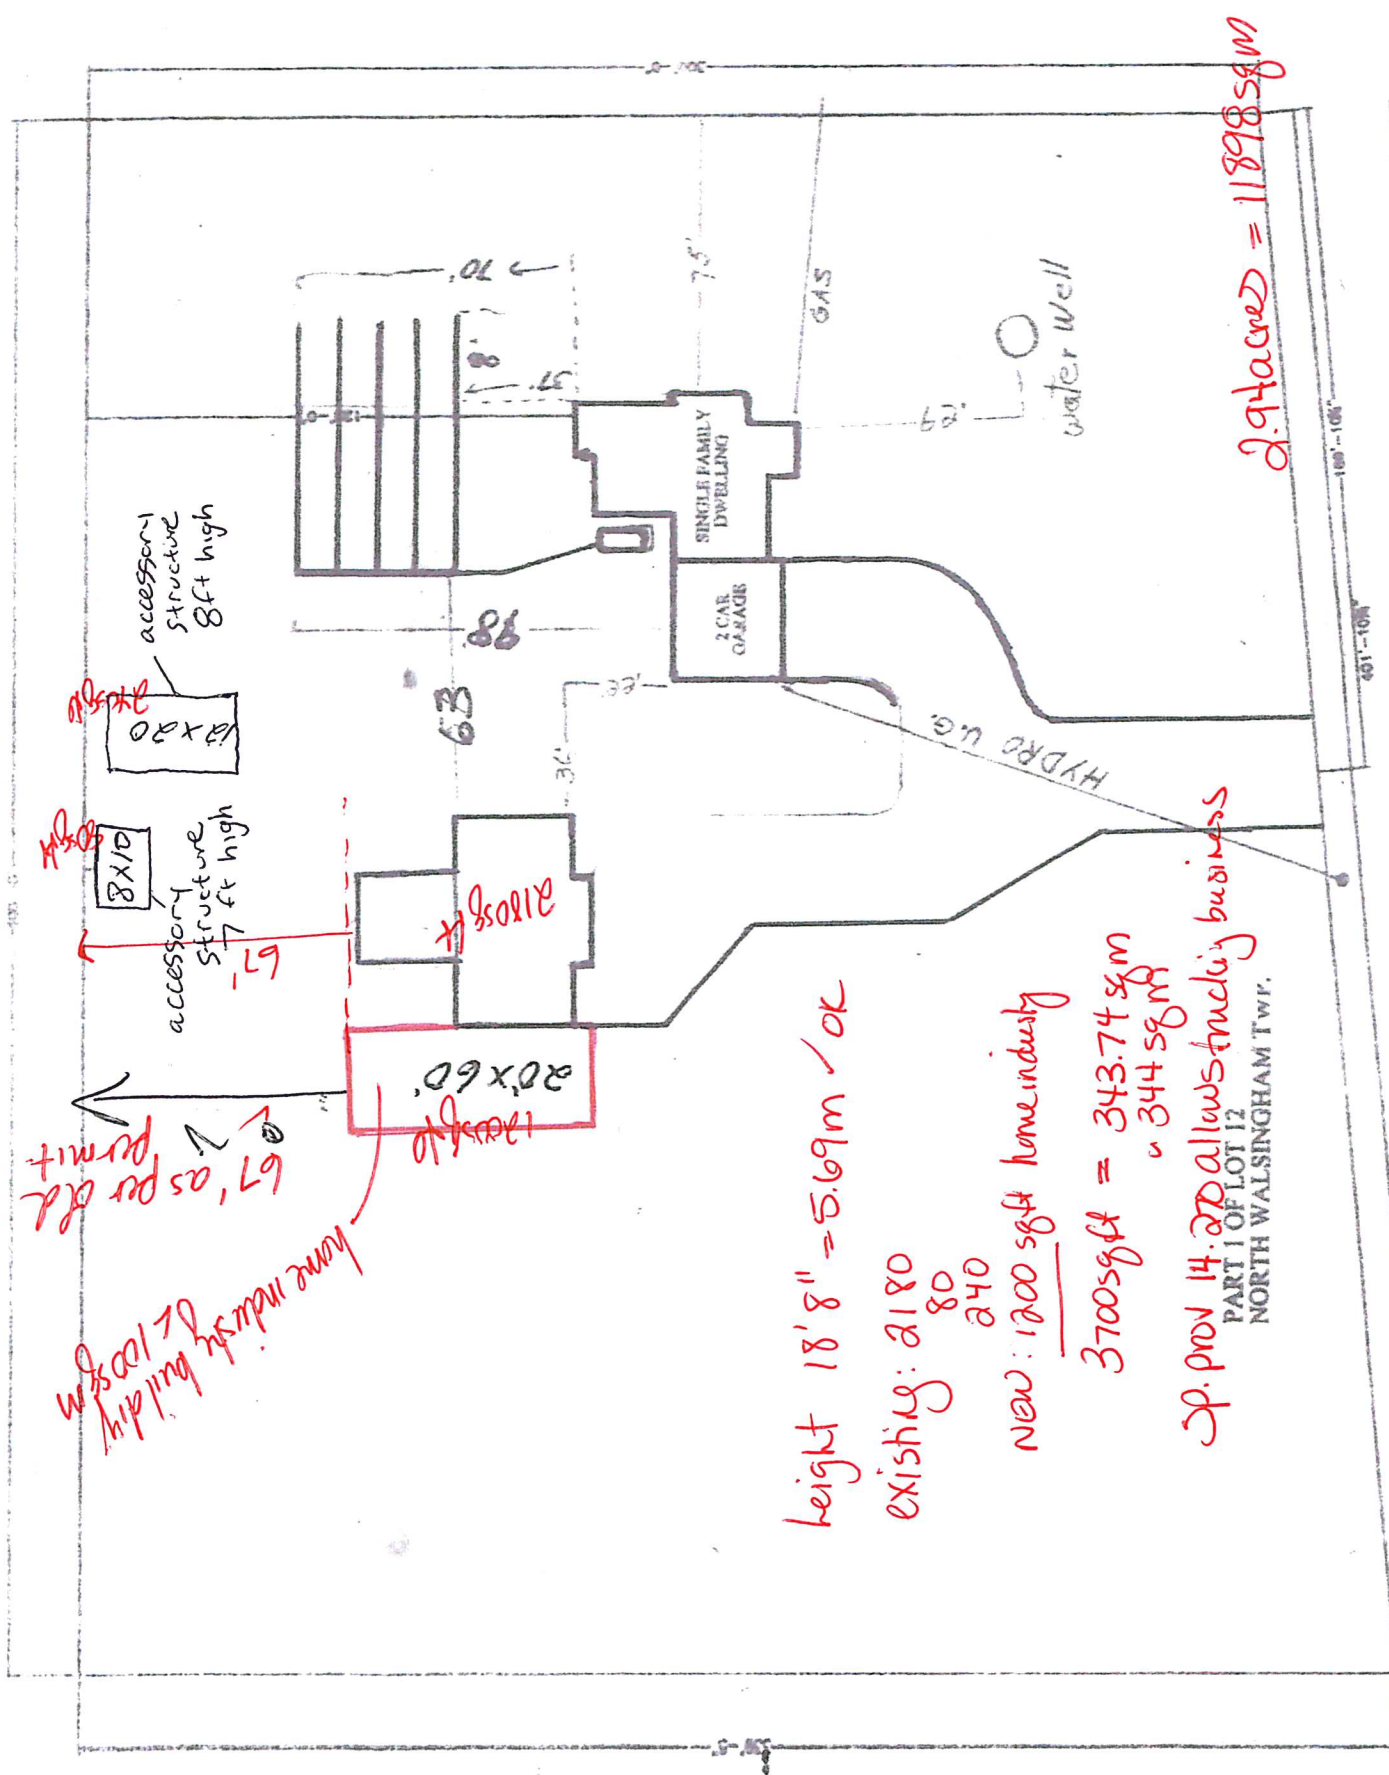 2.94 acres = 11898 sqm
75'
GAS
water well
62'
70'
8'
37'
SINGLE FAMILY
DWELLING
2 CAR
GARAGE
98'
63
22'
36'
HYDRO U.G.
accessory
structure
8ft high
12 x 20
240sqft
8X10
80sqft
accessory
structure
7 ft high
67'
2180sq
ft
20'x60'
1200sqft
67' as per old
permit
home industry building
< 100sqm
height 18'8" = 5.69m ✓ OK
existing: 2180
80
240
New: 1200 sqft home industry
3700sqft = 343.74 sqm
344 sqm
Sp. prov 14.270 allows trucking business
PART 1 OF LOT 12
NORTH WALSINGHAM TWP.